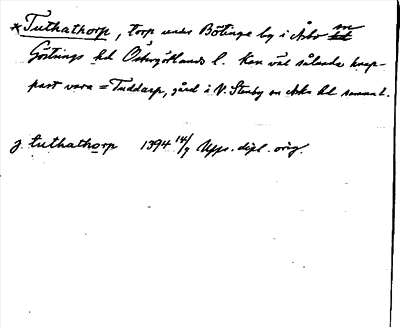 *Tuthathorp, torp under Bötinge by i Åsbo sn
Göstrings hd Östergötlands l. Kan väl således knap-
past vara = Tuddarp, gård i V. Stenby sn Aska hd samma l.
j tuthathorp 1394 14/7 Upps. dipl. orig.